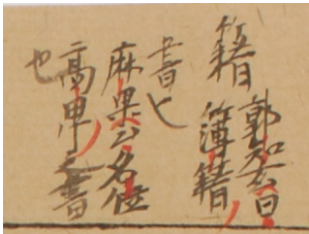 籍
郭知玄曰
簿籍
書也
麻果云名位
高卑之書
也